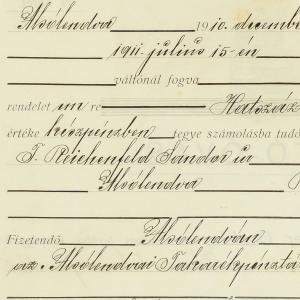 Alsólendva 1910. decembe
1911. julius 15-én
váltónál fogva
rendelet em re Hatszáz
értéke készpénzben tegye számolásba tudó
T. Reichenfeld Sándor úr
Alsólendva
Fizetendő Alsólendván
az. Alsólendvai Takarékpénztá